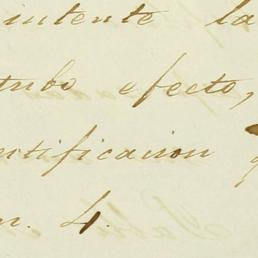 intente la
tubo efecto,
ntificacion
n. 4.